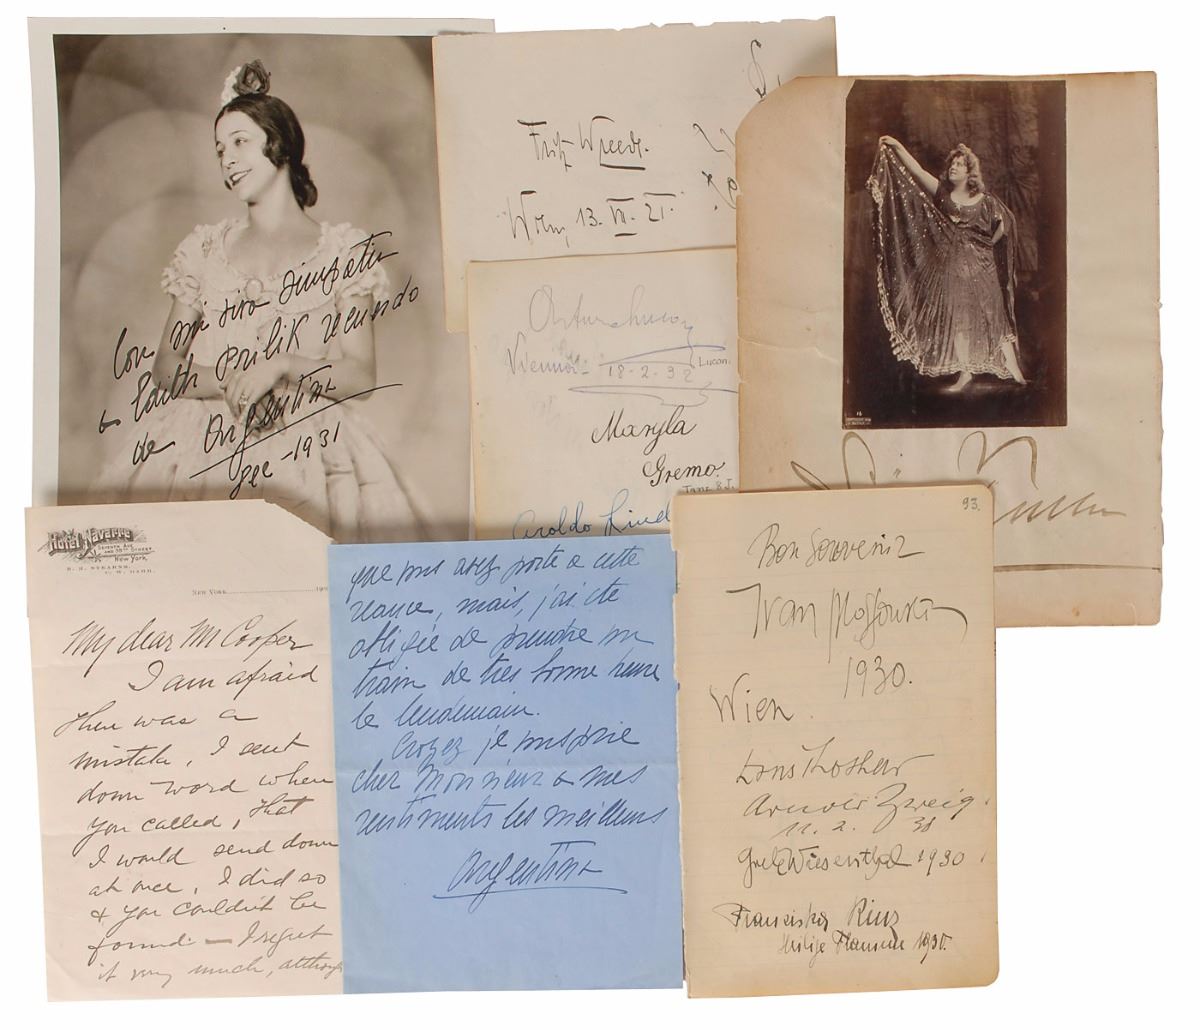 Con mi viva simpatia
a Edith Prilik recuerdo
de Argentina
1931
Fritz Wreede.
Wien, 13. VII. 21.
Vienna 18-2-32
Lucon.
Maryla
Gremo.
Aroldo
16
Hotel Navarre
SEVENTH AVE. AND 38TH STREET
New York,
R. H. STEARNS.
NEW YORK
My dear Mr Cooper
I am afraid
there was a
mistake, I sent
down word when
you called, that
I would send down
at once, I did so
& you couldn't be
found — I regret
it very much, although
que vous avez porté a cette
séance, mais, j'ai été
obligée de prendre un
train de tres bonne heure
le lendemain.
Croyez je vous prie
cher Monsieur a mes
sentiments les meilleurs
Argentina
93.
Bon Souvenir
Ivan
1930.
Wien
Arnold Zweig.
11. 2. 38
Grete Wiesenthal 1930
Heilige Flamme 1930.